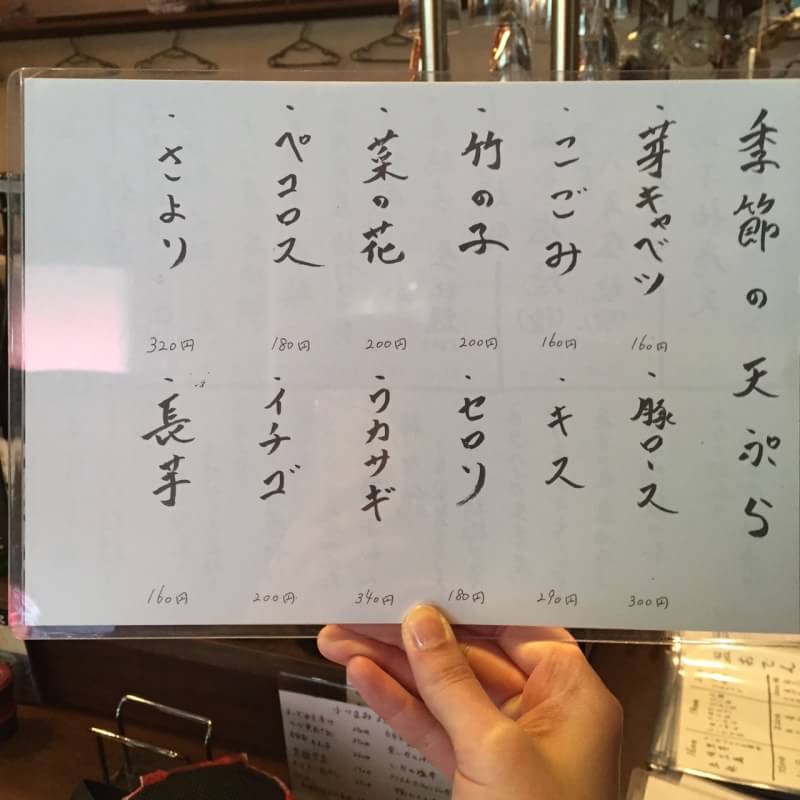 季節の天ぷら
・芽キャベツ
160円
・こごみ
160円
・竹の子
200円
・菜の花
200円
・ペコロス
180円
・さより
320円
・豚ロース
300円
・キス
290円
・セロリ
180円
・ワカサギ
340円
・イチゴ
200円
・長芋
160円
おでん